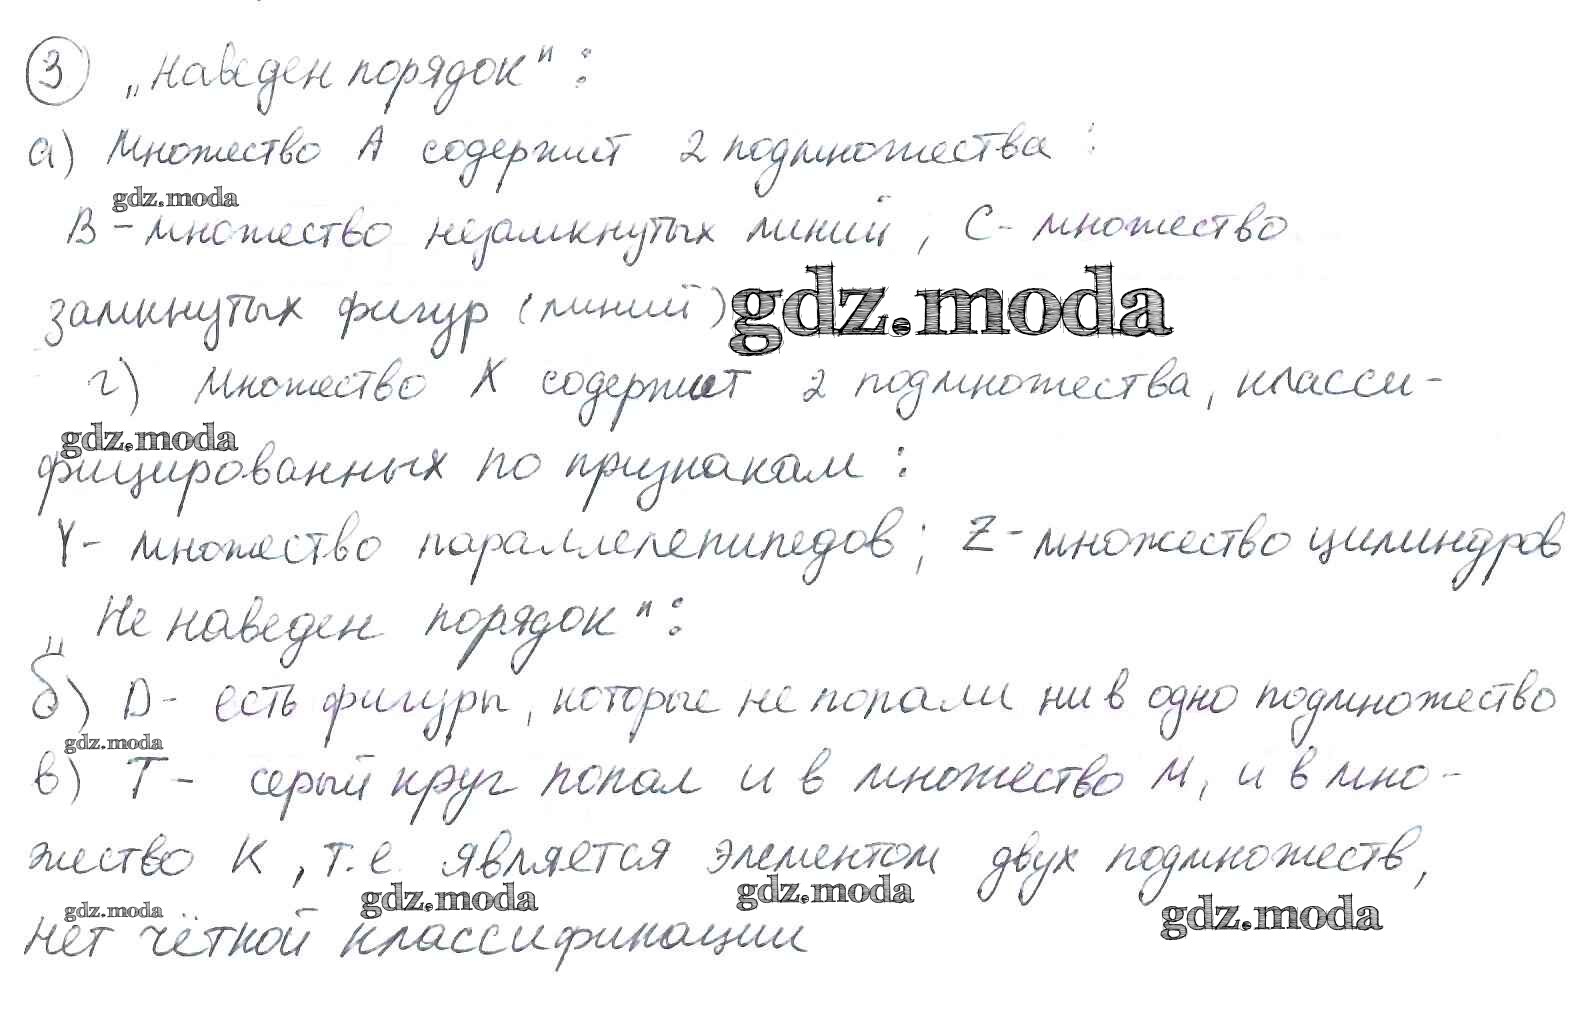 3 „Наведен порядок":
а) Множество А содержит 2 подмножества:
gdz.moda
В - множество незамкнутых линий, С - множество
замкнутых фигур (линий)
gdz.moda
г) множество Х содержит 2 подмножества, класси-
gdz.moda
фицированных по признакам:
Y - множество параллелепипедов; Z - множество цилиндров
„Не наведен порядок":
б) D - есть фигуры, которые не попали ни в одно подмножество
gdz.moda
в) Т - серый круг попал и в множество М, и в мно-
жество К, т.е. является элементом двух подмножеств,
gdz.moda gdz.moda gdz.moda gdz.moda
нет чёткой классификации